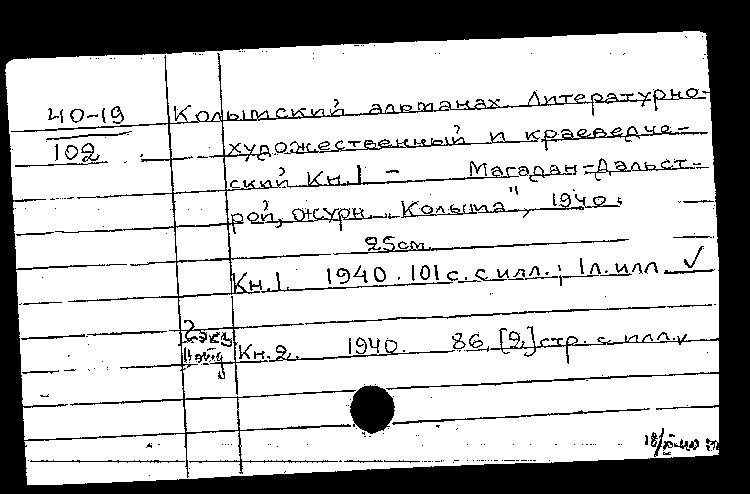 40-19 Колымский альманах. Литературно-
102 художественный и краеведче-
ский Кн.1 - Магадан-Дальст-
рой, журн. „Колыма", 1940.
25см.
Кн.1. 1940. 101 с. с илл.; 1 л. илл. ✓
Кн.2. 1940. 86, [2] стр. с илл.